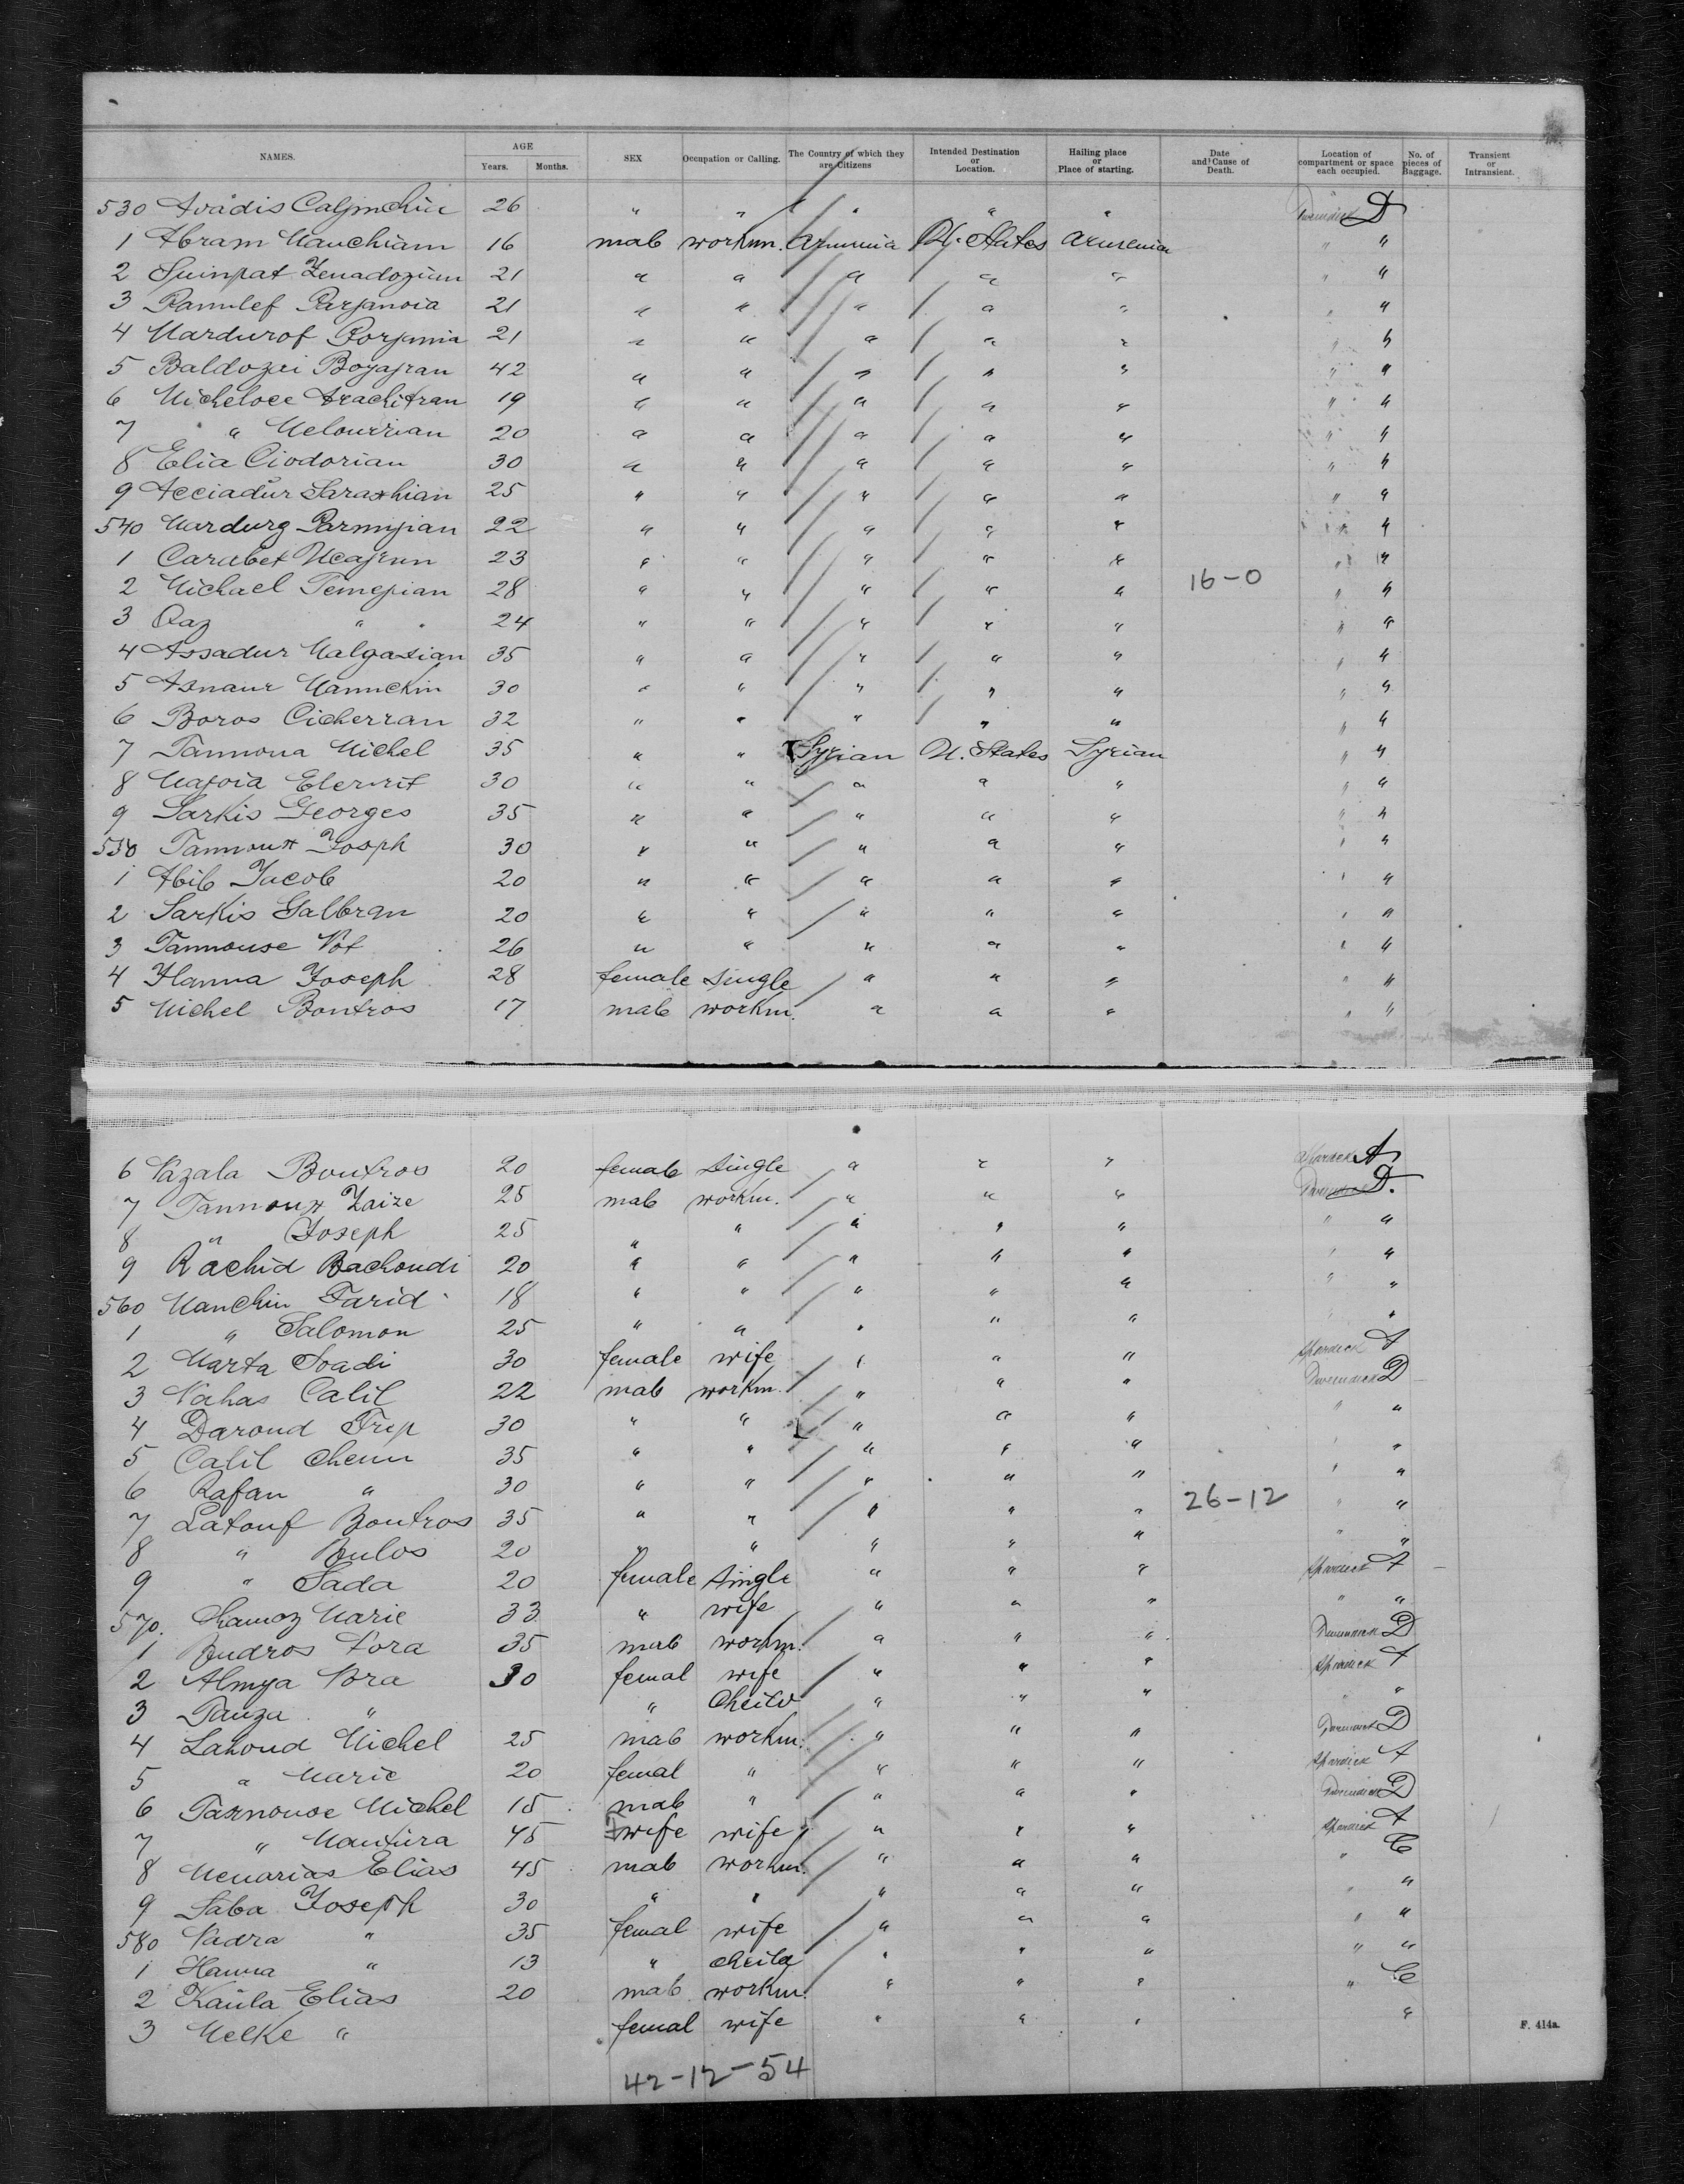 NAMES. AGE Years. Months. SEX Occupation or Calling. The Country of which they are Citizens Intended Destination or Location. Hailing place or Place of starting. Date and Cause of Death. Location of compartment or space each occupied. No. of pieces of Baggage. Transient or Intransient.
530 Avadis 26 " " " " " D
1 Abram Mauchiam 16 male workm. Armenia U. States Armenia " "
2 Suinpat Zenadozian 21 " " " " " " "
3 21 " " " " " " "
4 Mardurof 21 " " " " " " "
5 Baldozei Boyajran 42 " " " " " " "
6 Micheloce Arachitran 19 " " " " " " "
7 " Melourrian 20 " " " " " " "
8 Elia Ciodorian 30 " " " " " " "
9 Acciadur Saraxhian 25 " " " " " " "
540 Mardurg 22 " " " " " " "
1 Carabet 23 " " " " " " "
2 Michael Temepian 28 " " " " " 16-0 " "
3 " 24 " " " " " " "
4 Assadur Malgasian 35 " " " " " " "
5 Asnaur Mannchin 30 " " " " " " "
6 Boros Cicherran 32 " " " " " " "
7 Tannoua Michel 35 " " Syrian U. States Syrian " "
8 30 " " " " " " "
9 Sarkis Georges 35 " " " " " " "
550 Tannoux Yosph 30 " " " " " " "
1 Abib Yacob 20 " " " " " " "
2 Sarkis Galbran 20 " " " " " " "
3 Tannouse 26 " " " " " " "
4 Hanna Joseph 28 female single " " " " "
5 Michel Bontros 17 male workm. " " " " "
6 Nazala Boutros 20 female single " " " A
7 Tannoux Zaize 25 male workm. " " " D.
8 " Joseph 25 " " " " " " "
9 Rachid Bachoudi 20 " " " " " " "
560 Manchin Farid 18 " " " " " " "
1 " Salomon 25 " " " " " " "
2 Marta Soadi 30 female wife " " " A
3 Nahas Calil 22 male workm. " " " D
4 Daroud 30 " " " " " " "
5 Calil Chenn 35 " " " " " " "
6 Rafan " 30 " " " " " " "
7 Latouf Boutros 35 " " " " " 26-12 " "
8 " Bulos 20 " " " " " " "
9 " Sada 20 female single " " " A
570. Chamoz Marie 33 " wife " " " " "
1 Budros 35 male workm. " " " D
2 Almya 30 femal wife " " " A
3 Tauza " " Cheild " " " " "
4 Lahoud Michel 25 male workm. " " " D
5 " Marie 20 femal " " " " A
6 Tannouse Michel 15 male " " " " D
7 " Mantura 45 wife wife " " " A
8 Menarias Elias 45 male workm. " " " " C
9 Saba Joseph 30 " " " " " " "
580 Nadra " 35 femal wife " " " " "
1 Hanna " 13 " cheild " " " " "
2 Kaula Elias 20 male workm. " " " " C
3 Melke " femal wife " " " "
F. 414a.
42-12-54